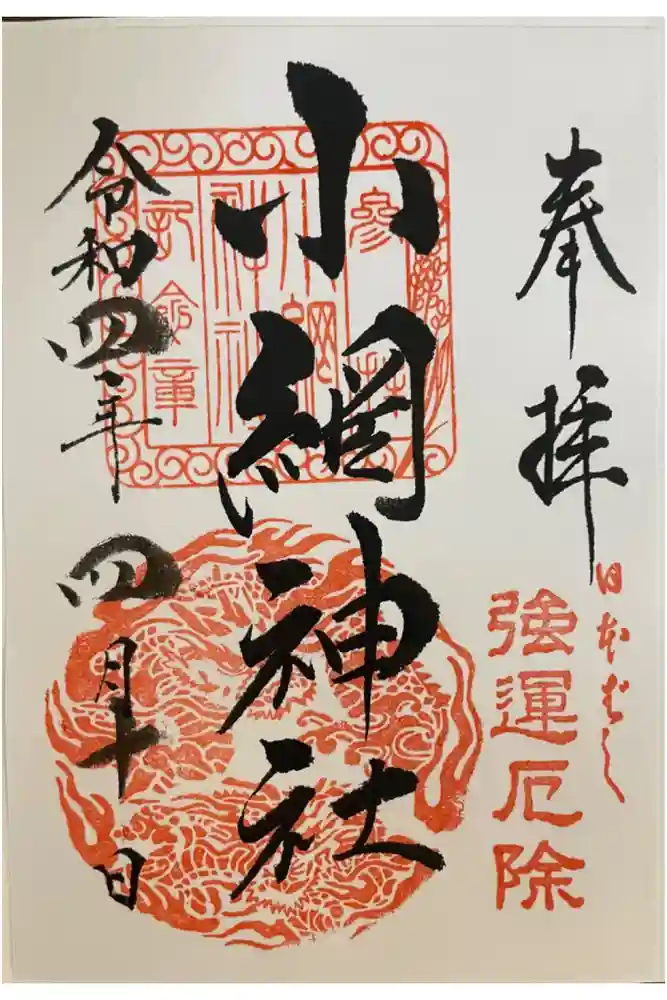 奉拝
日本ばし
強運厄除
小網神社
参拝
小網
神社
記念章
令和四年
四月十日